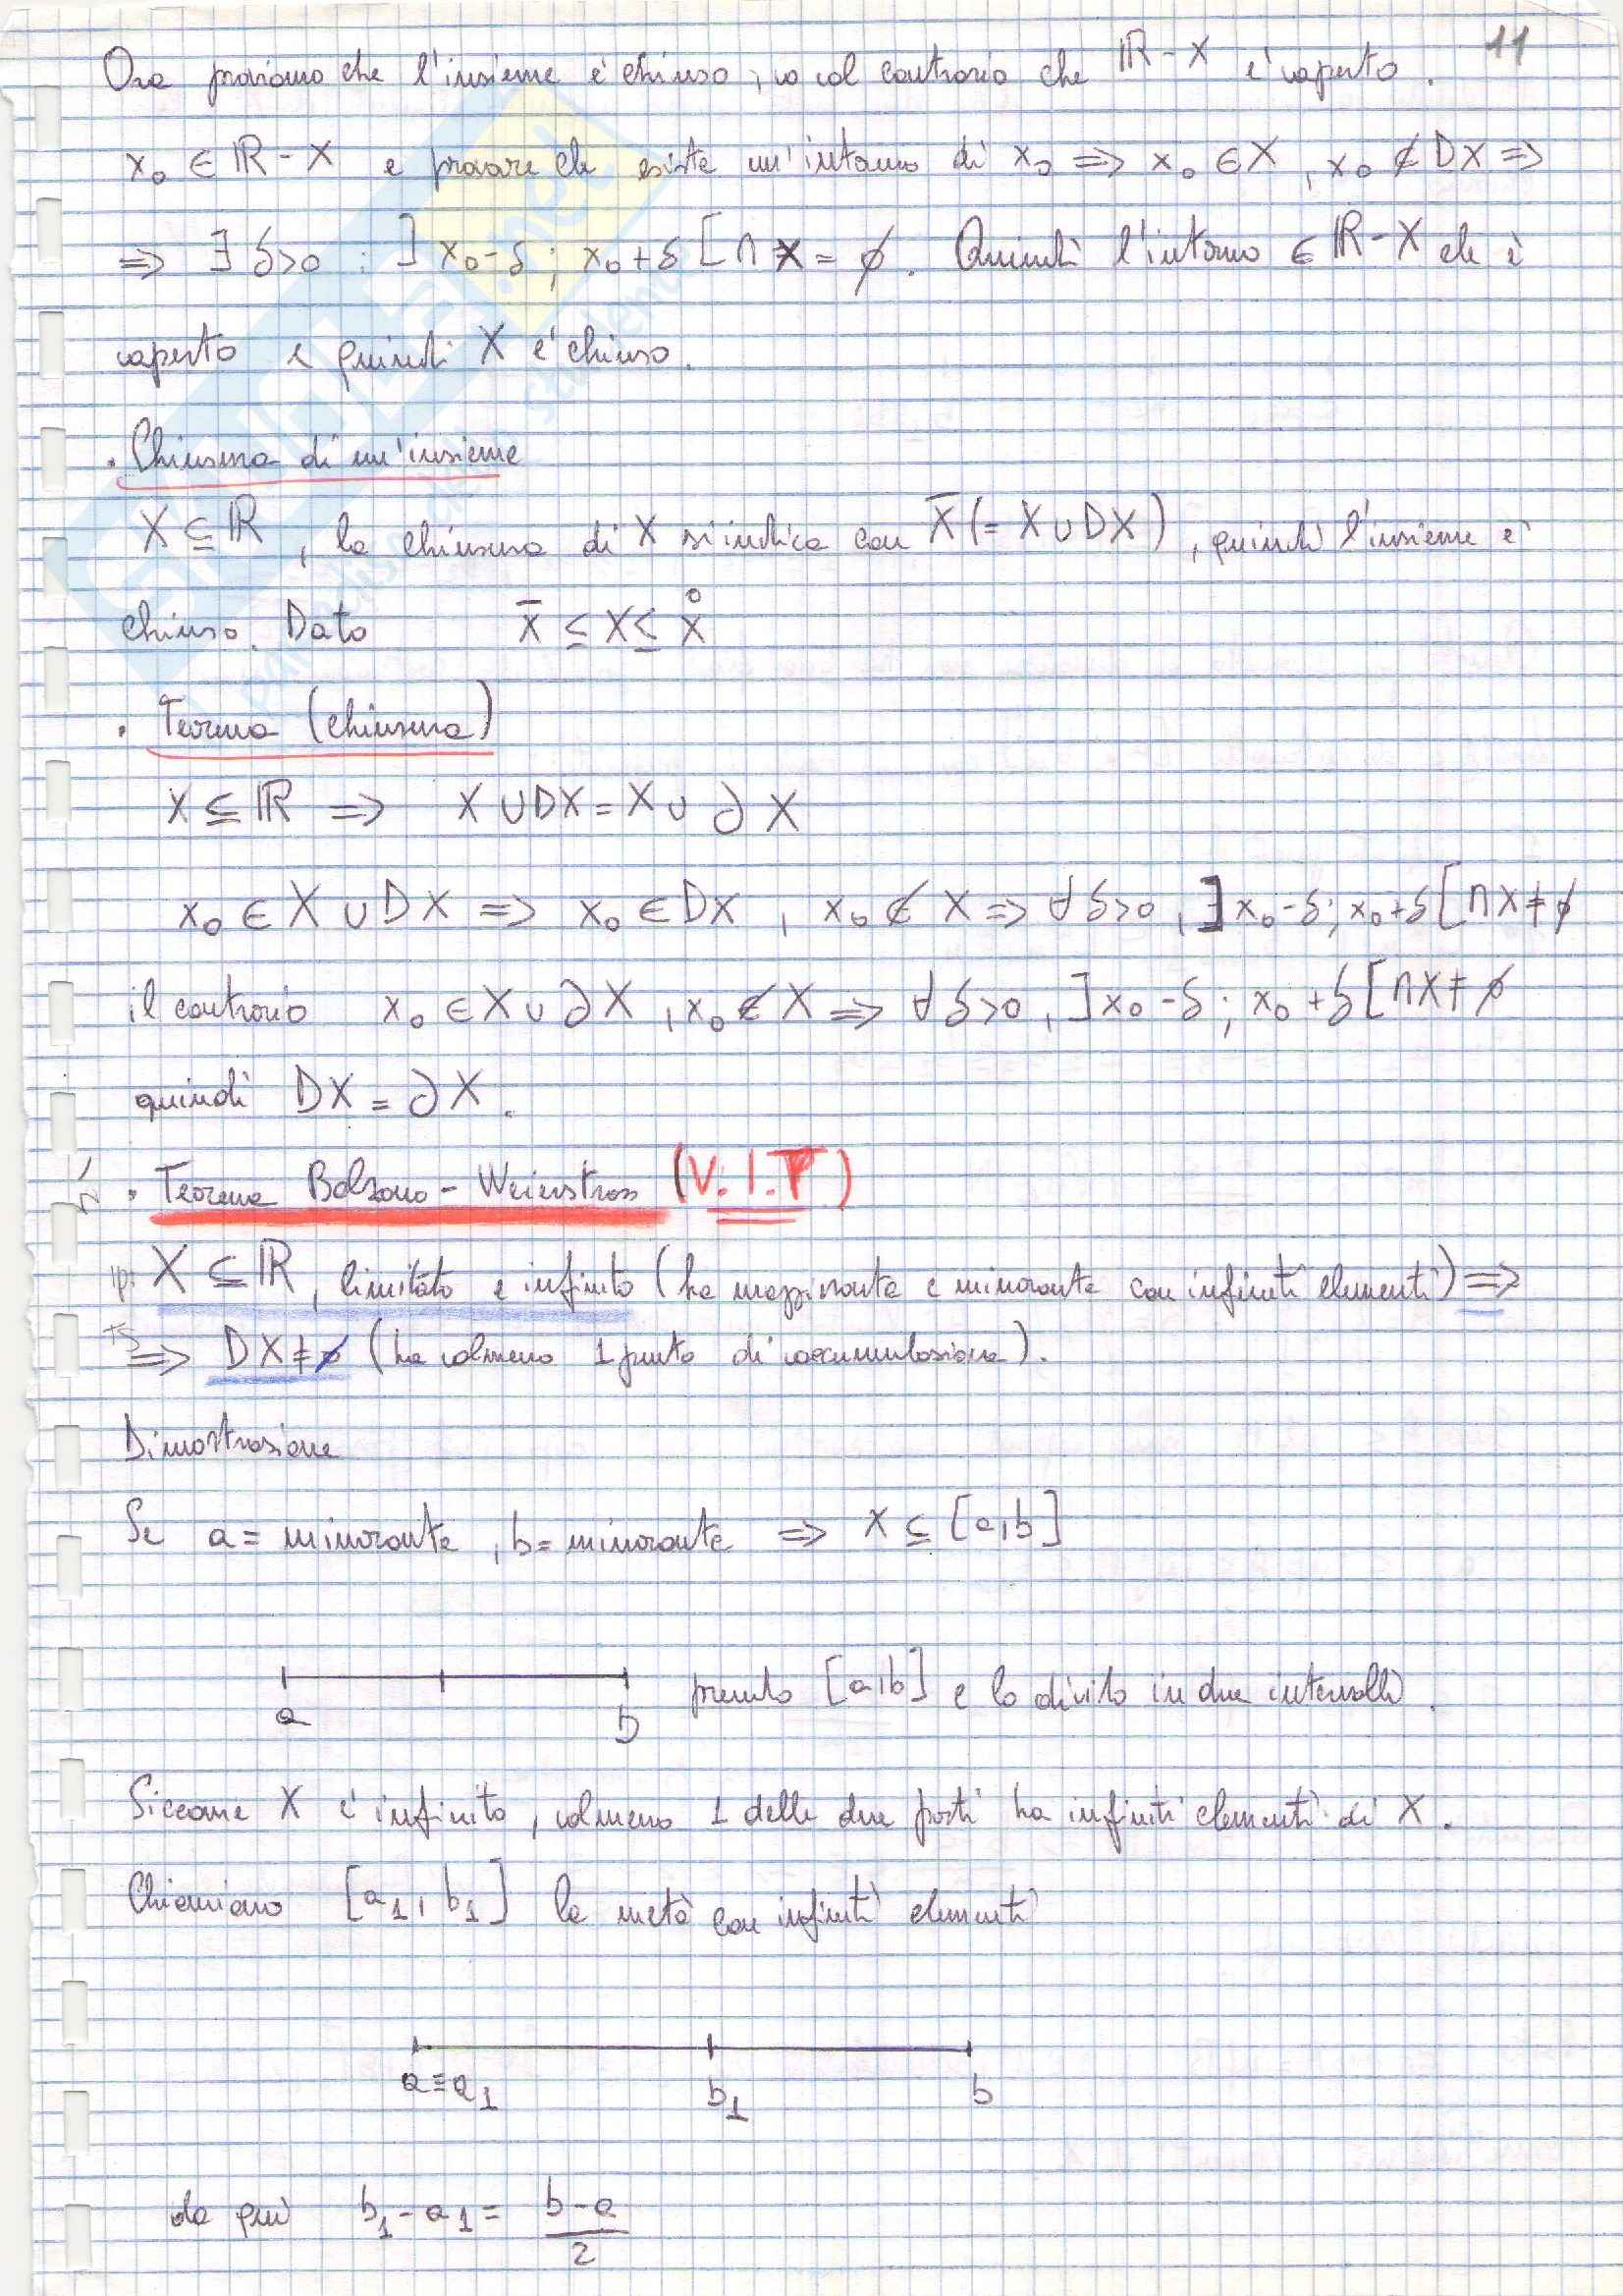 11
Ora proviamo che l'insieme è chiuso, o al contrario che ℝ - X è aperto.
x₀ ∈ ℝ - X e provare che esiste un'intorno di x₀ ⇒ x₀ ∈ X, x₀ ∉ DX ⇒
⇒ ∃ δ>0 : ]x₀-δ; x₀+δ[ ∩ X = ∅. Quindi l'intorno ∈ ℝ - X che è
aperto e quindi X è chiuso.
. Chiusura di un'insieme
X ⊆ ℝ, la chiusura di X si indica con X̄ (= X ∪ DX), quindi l'insieme è
chiuso. Dato X̄ ⊆ X ⊆ X̊
. Teorema (chiusura)
X ⊆ ℝ ⇒ X ∪ DX = X ∪ ∂X
x₀ ∈ X ∪ DX ⇒ x₀ ∈ DX, x₀ ∉ X ⇒ ∀ δ>0, ]x₀-δ; x₀+δ[ ∩ X ≠ ∅
il contrario x₀ ∈ X ∪ ∂X, x₀ ∉ X ⇒ ∀ δ>0, ]x₀-δ; x₀+δ[ ∩ X ≠ ∅
quindi DX = ∂X.
. Teorema Bolzano - Weierstrass (V.I.T)
ip: X ⊆ ℝ, limitato e infinito (ha maggiorante e minorante con infiniti elementi) ⇒
Ts ⇒ DX ≠ ∅ (ha almeno 1 punto di accumulazione).
Dimostrazione
Se a = minorante, b = minorante ⇒ X ⊆ [a,b]
a b prendo [a,b] e lo divido in due intervalli.
Siccome X è infinito, almeno 1 delle due parti ha infiniti elementi di X.
Chiamiamo [a₁, b₁] la metà con infiniti elementi
a≡a₁ b₁ b
da qui b₁ - a₁ = (b-a)/2